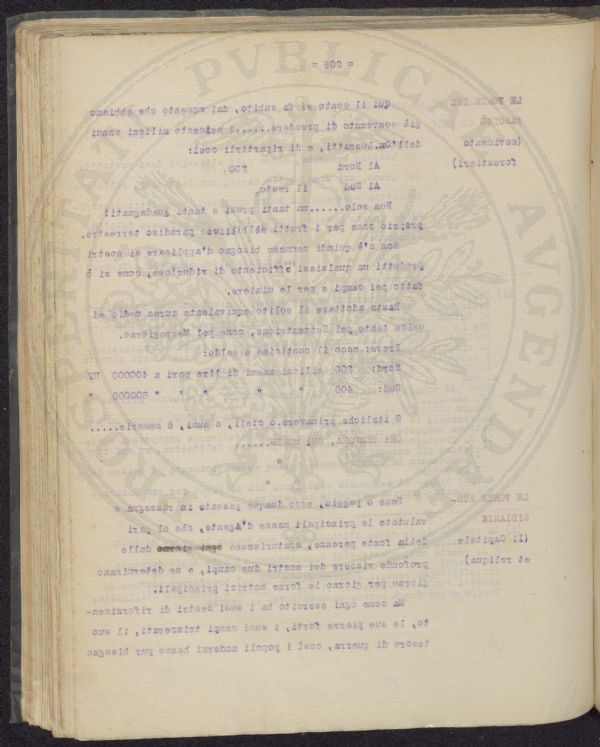 = 206 =
LE FORZE DEL
PAROLMO
(movimento
forestieri)
Qui il conto si fa subito, dal momento che abbiamo
già convenuto di prendere.......i seicento milioni annui
dell'On. Luzzatti, e di ripartirli così:
Al Nord 200.
Al Sud il resto.
Non solo.......ma tanti presi e tanti guadagnati:
proprio come per i frutti del biblico paradiso terrestre.
Non c'è quindi nemmeno bisogno d'applicare ai nostri
prodotti un qualsiasi coefficiente di riduzione, come si è
fatto pei campi e per le miniere.
Basta adottare il solito equivalente aureo medio ed
unico tanto pel Settentrione, come pel Mezzogiorno.
Prova: ecco il conticino a saldo:
Nord: 200 milioni annui di lire pari a 400000 HP
Sud: 400 " " " " " 800000 "
O italiche primavere, o cieli, o aumi, o memorie.....
OH! TEMPORA, OH! MORES......
LE FORZE SUS-
SIDIARIE
(Il Capitale
et reliqua)
Bene o peggio, ecco dunque passate in rassegna e
valutate le principali masse d'Agente, che al pari
della fonte perenne, scaturiscono ogni giorno dalle
profonde viscere dei nostri due campi, e ne determinano
giorno per giorno le forze motrici principali.
Ma come ogni esercito ha i suoi centri di rifornimen-
to, le sue piazze forti, i suoi campi trincerati, il suo
tesoro di guerra, così i popoli moderni hanno pur bisogno
PROSPERITATI PVBLICAE AVGENDAE